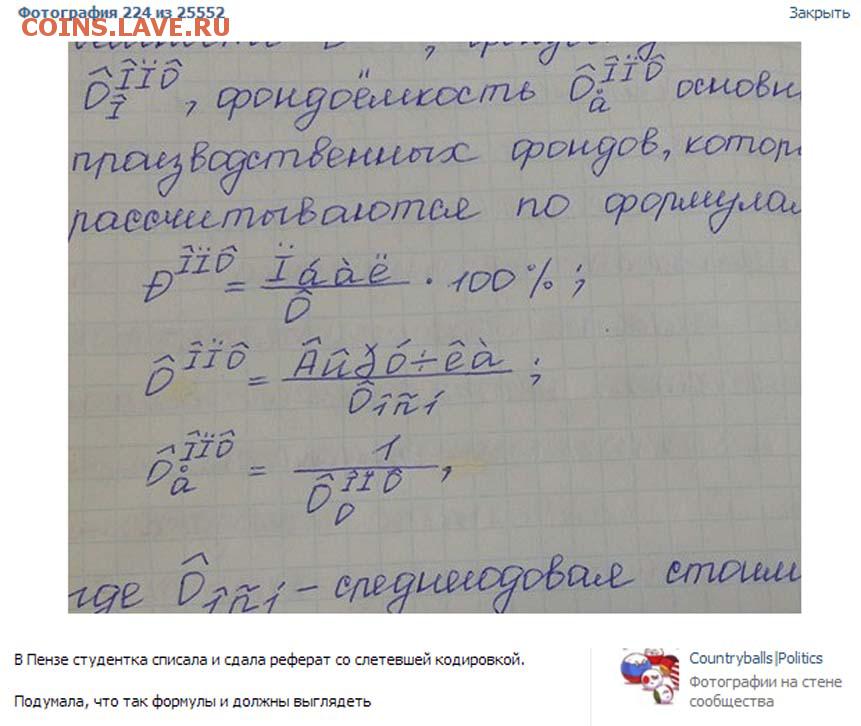 Фотография 224 из 25552
Закрыть
COINS.LAVE.RU
Ô ÎÏÔ Î , фондоёмкость Ô ÎÏÔ å основн
производственных фондов, котор
рассчитываются по формулам
Ð ÎÏÔ = Ïáàë / Ô · 100 % ;
Ô ÎÏÔ = Âûðó÷êà / Ôîñí ;
Ô ÎÏÔ å = 1 / Ô ÎÏÔ О ,
где Ôîñí - среднегодовая стоим
В Пензе студентка списала и сдала реферат со слетевшей кодировкой.
Подумала, что так формулы и должны выглядеть
Countryballs|Politics
Фотографии на стене
сообщества